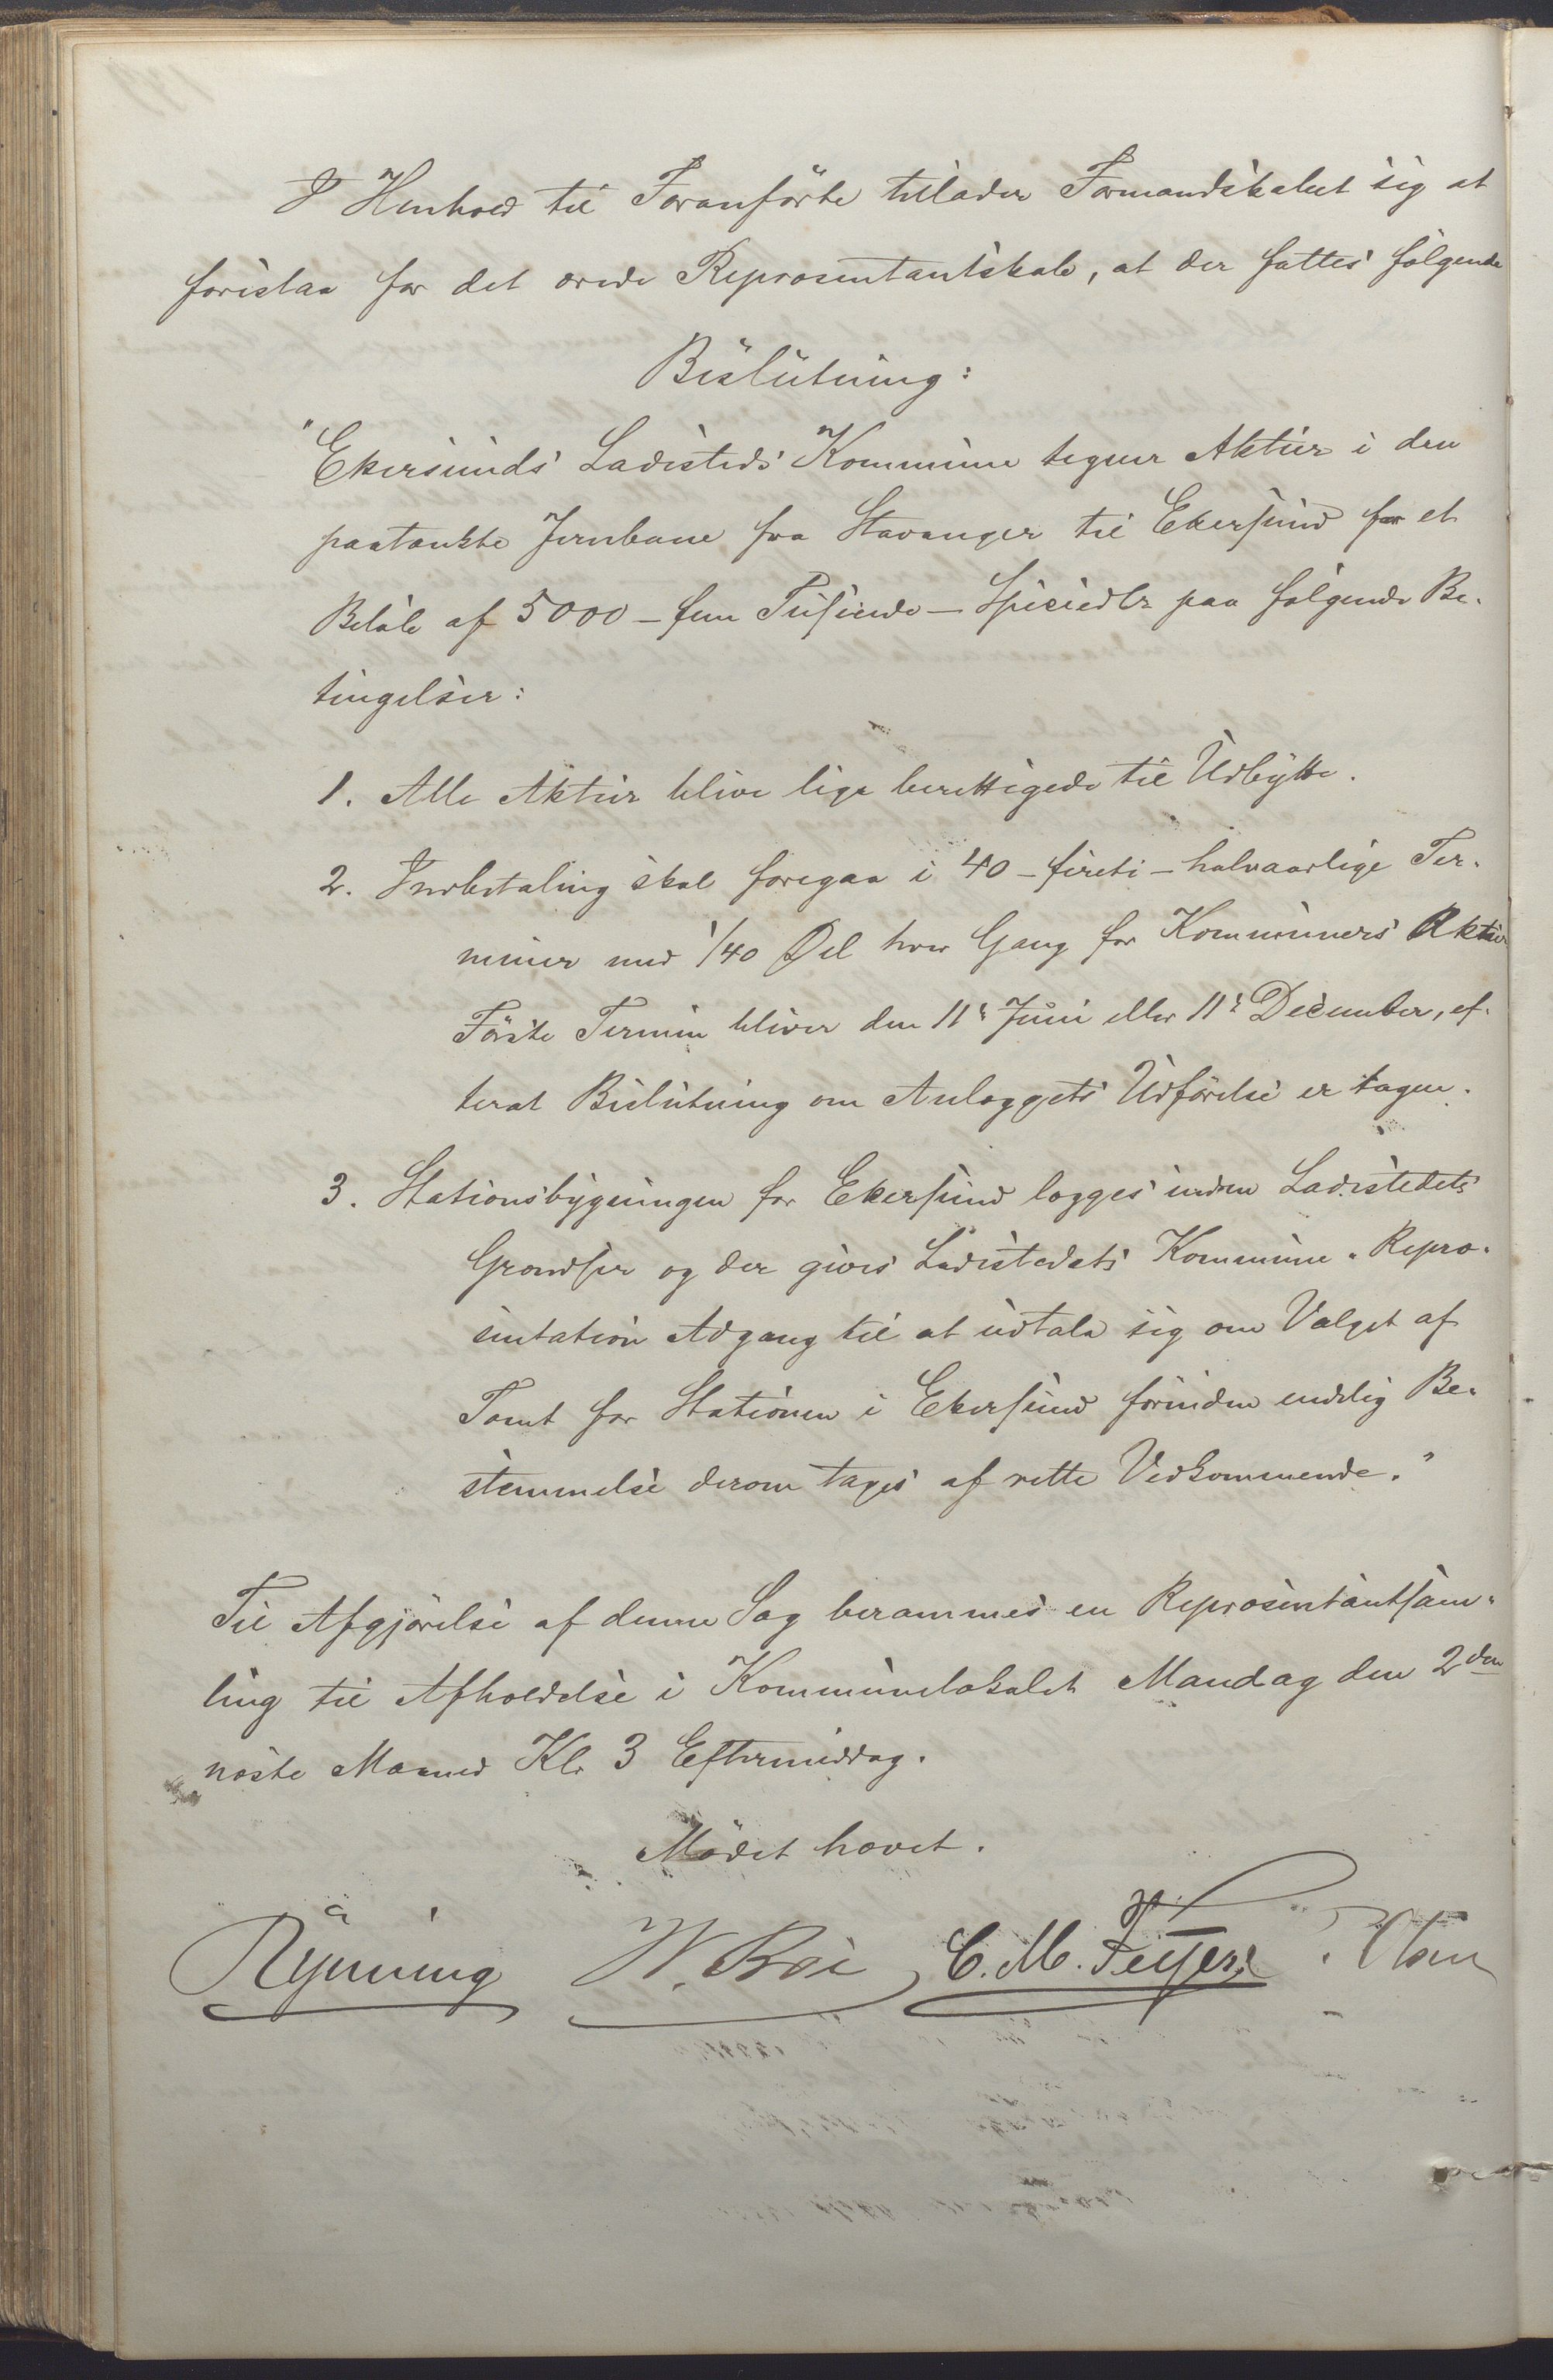 I Henhold til Foranførte tillader Formandskabet sig at
foreslaa for det ærede Repræsentantskab, at der fattes følgende
Beslutning:
"Ekersunds Ladesteds Kommune tegner Aktier i den
paatænkte Jernbane fra Stavanger til Ekersund for et
Beløb af 5000 - fem Tusinde - Speciedlr paa følgende Be-
tingelser:
1. Alle Aktier blive lige berettigede til Udbytte.
2. Indbetaling skal foregaa i 40 - fireti - halvaarlige Ter-
miner med 1/40 Del hver Gang for Kommuners Aktier
Første Termin bliver den 11te Juni eller 11te December, ef-
terat Beslutning om Anlæggets Udførelse er tagen.
3. Stationsbygningen for Ekersund lægges inden Ladestedets
Grændser og der gives Ladestedets Kommune-Repræ-
sentation Adgang til at udtale sig om Valget af
Tomt for Stationen i Ekersund forinden endelig Be-
stemmelse derom tages af rette Vedkommende."
Til Afgjørelse af denne Sag berammes en Repræsentantsam-
ling til Afholdelse i Kommunelokalet Mandag den 2den
næste Maaned Kl. 3 Eftermiddag.
Mødet hævet.
Rynning W. Boe C. M. Feyer